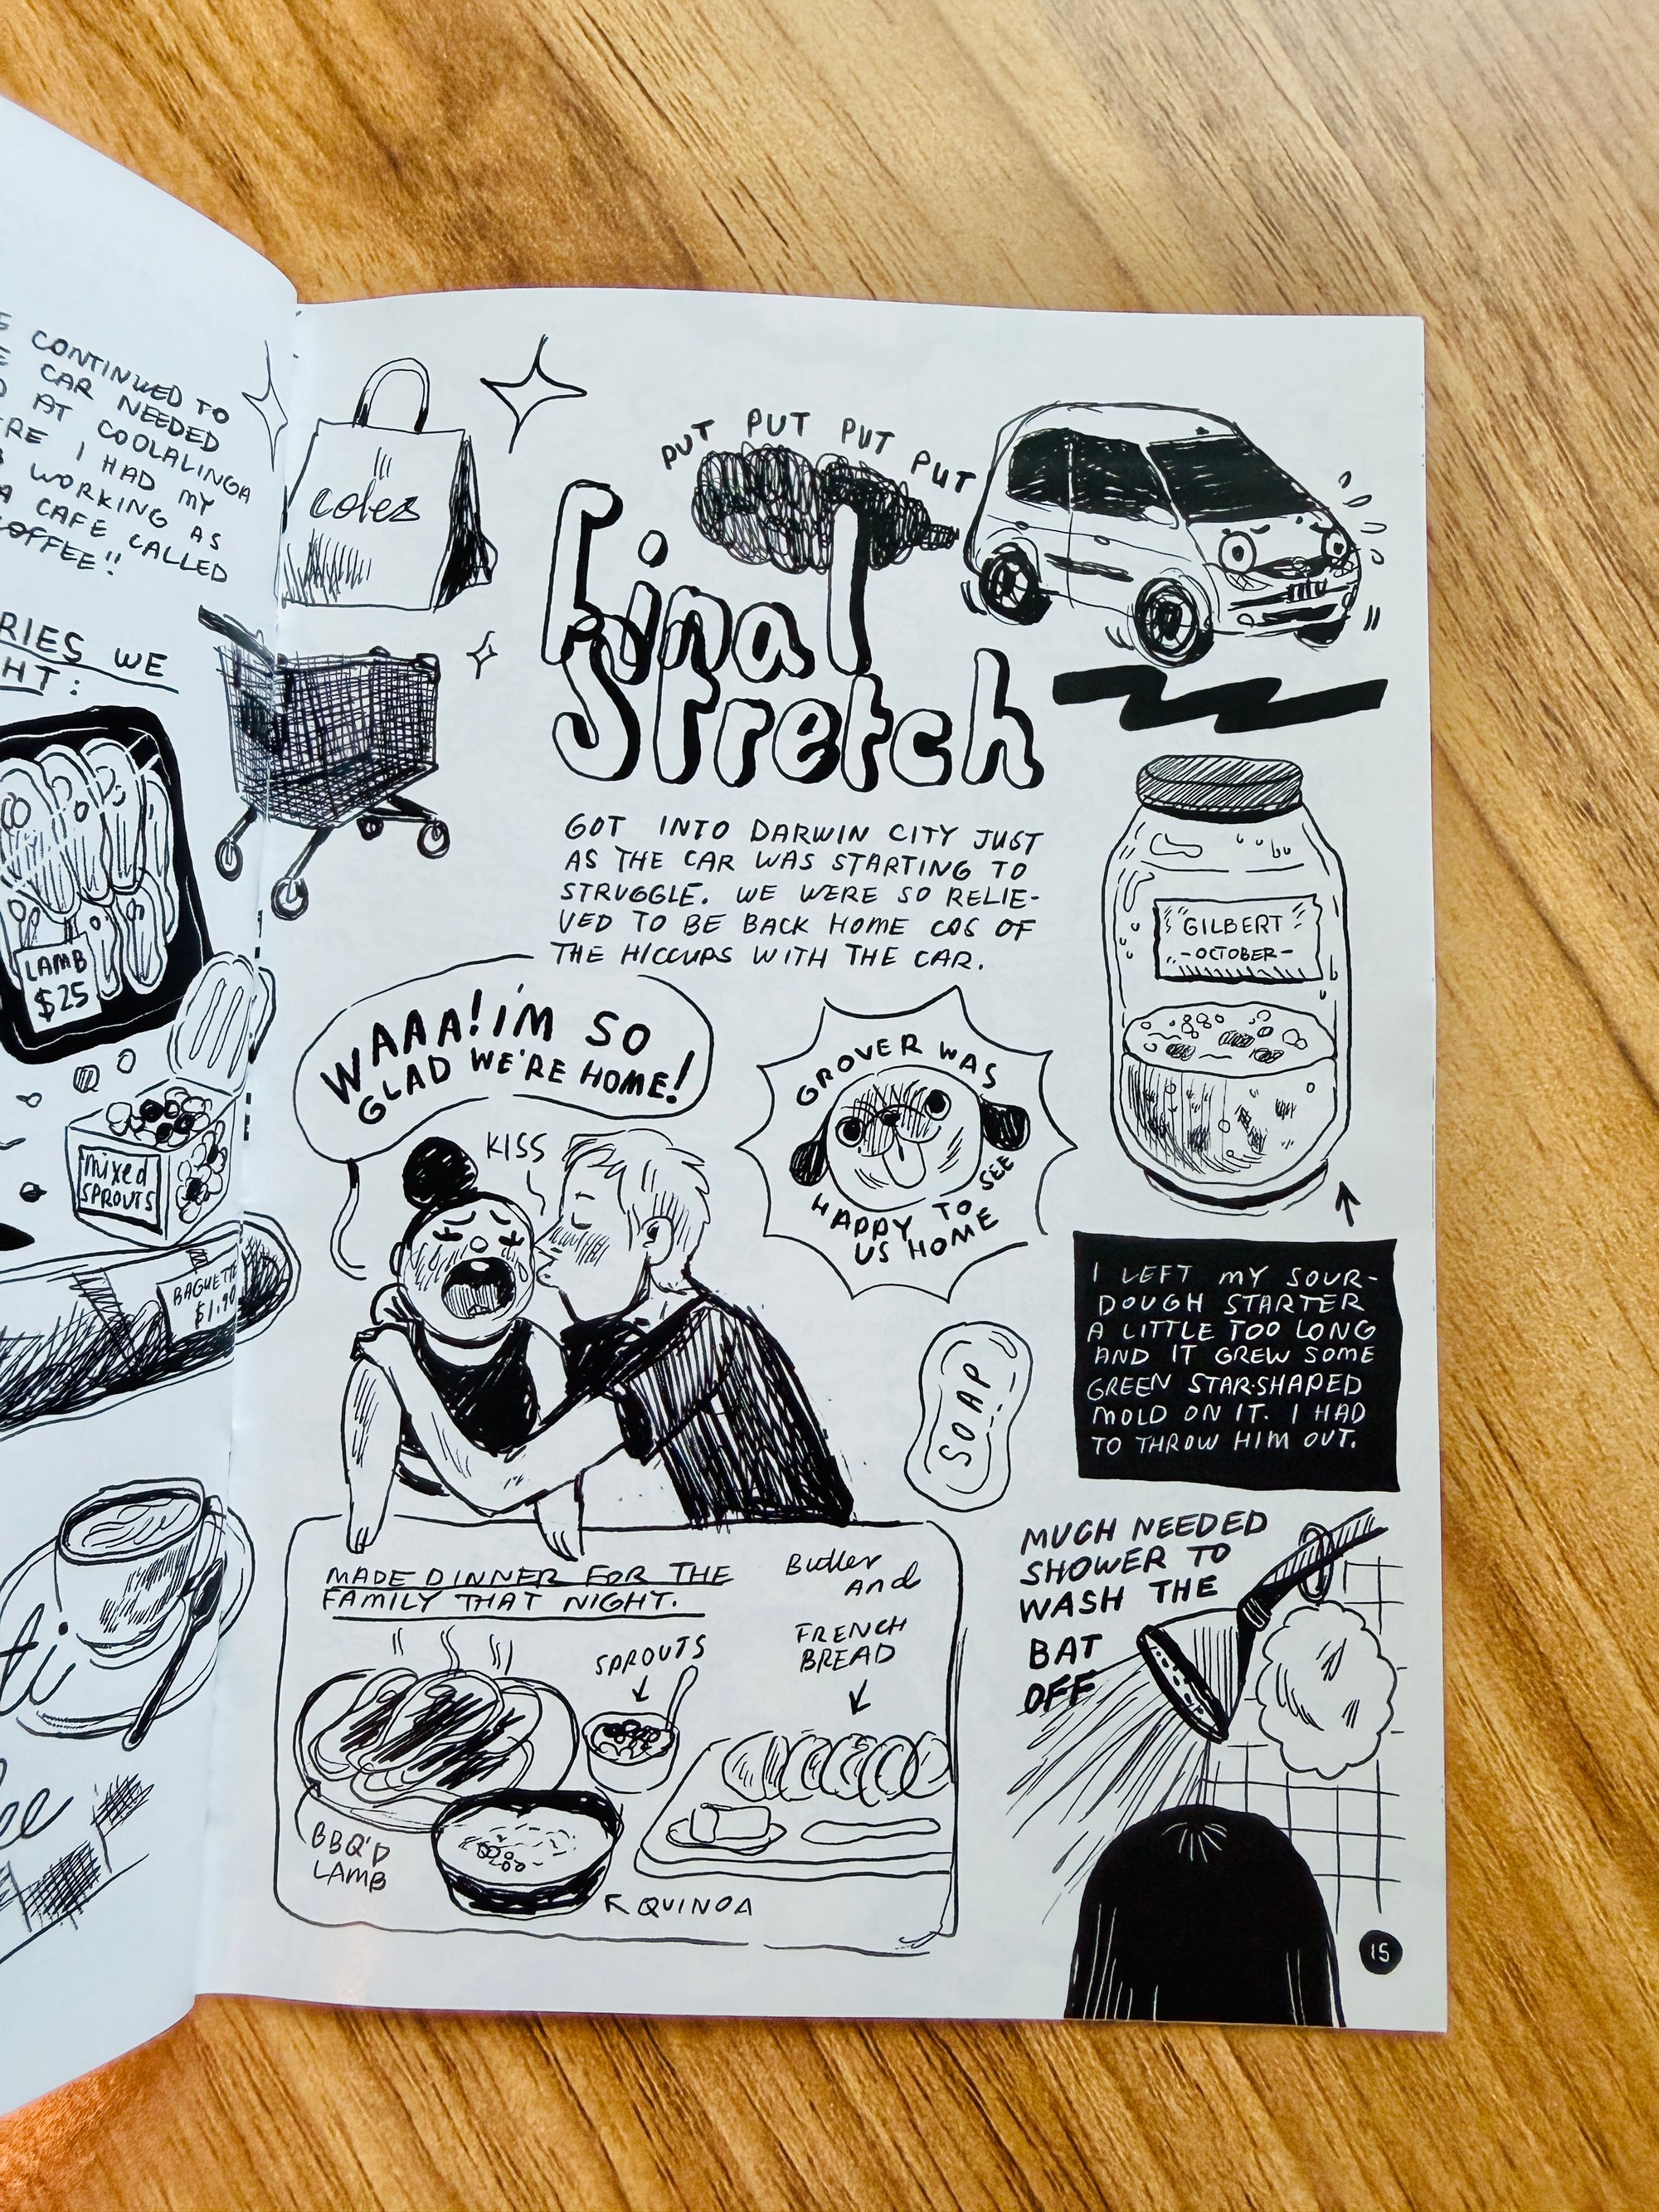 CONTINUED TO
CAR NEEDED
AT COOLALINGA
I HAD MY
WORKING AS
A CAFE CALLED
COFFEE!!
WE
LAMB
$25
mixed
SPROUTS
BAGUETTE
$1.90
coles
PUT PUT PUT PUT
Final
Stretch
GOT INTO DARWIN CITY JUST
AS THE CAR WAS STARTING TO
STRUGGLE. WE WERE SO RELIE-
VED TO BE BACK HOME COS OF
THE HICCUPS WITH THE CAR.
WAAA! I'M SO
GLAD WE'RE HOME!
KISS
GROVER WAS
HAPPY TO SEE
US HOME
GILBERT
-OCTOBER-
I LEFT MY SOUR-
DOUGH STARTER
A LITTLE TOO LONG
AND IT GREW SOME
GREEN STAR-SHAPED
MOLD ON IT. I HAD
TO THROW HIM OUT.
SOAP
MADE DINNER FOR THE
FAMILY THAT NIGHT.
Butter
and
FRENCH
BREAD
SPROUTS
BBQ'D
LAMB
QUINOA
MUCH NEEDED
SHOWER TO
WASH THE
BAT
OFF
15